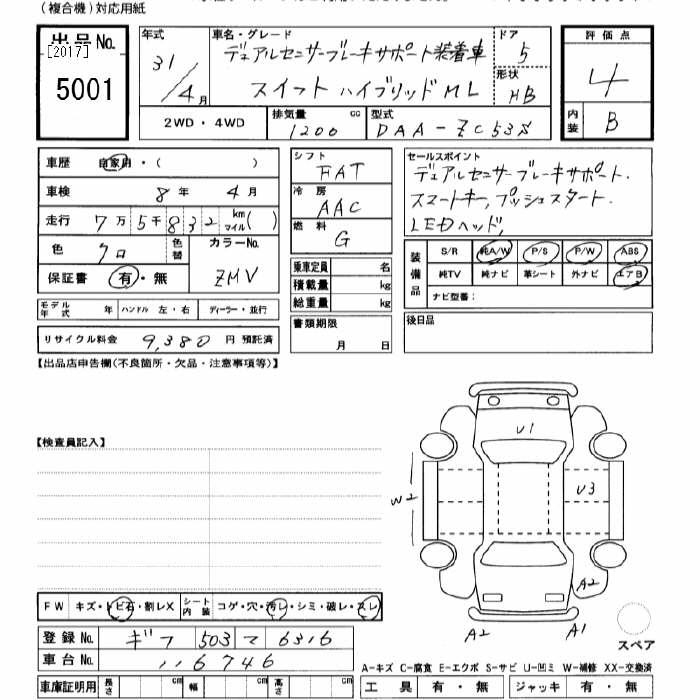 (複合機)対応用紙
出品No. [2017] 5001
年式 31/4月
車名・グレード デュアルセンサーブレーキサポート装着車
スイフト ハイブリッド ML
ドア 5
形状 HB
評価点 4
内装 B
2WD・4WD
排気量 1200 cc
型式 DAA-ZC53S
車歴 自家用・( )
車検 8年 4月
走行 7万5千832 km マイル( )
色 クロ 色替
カラーNo. ZMV
保証書 有・無
モデル年式 年 ハンドル 左・右 ディーラー・並行
リサイクル料金 9,380円 預託済
シフト FAT
冷房 AAC
燃料 G
乗車定員 名
積載量 kg
総重量 kg
書類期限 月 日
セールスポイント
デュアルセンサーブレーキサポート.
スマートキー,プッシュスタート.
LEDヘッド,
装備品 S/R 純A/W P/S P/W ABS
純TV 純ナビ 革シート 外ナビ エアB
ナビ型番:
後日品
【出品店申告欄(不良箇所・欠品・注意事項等)】
【検査員記入】
U1
W2
U3
A2
A2 A1
スペア
FW キズ・トビ石・割レX シート内装 コゲ・穴・汚レ・シミ・破レ・スレ
登録No. ギフ 503 マ 6316
車台No. 116746
車庫証明用 長さ cm 幅 cm 高さ cm
A-キズ C-腐食 E-エクボ S-サビ U-凹ミ W-補修 XX-交換済
工具 有・無 ジャッキ 有・無